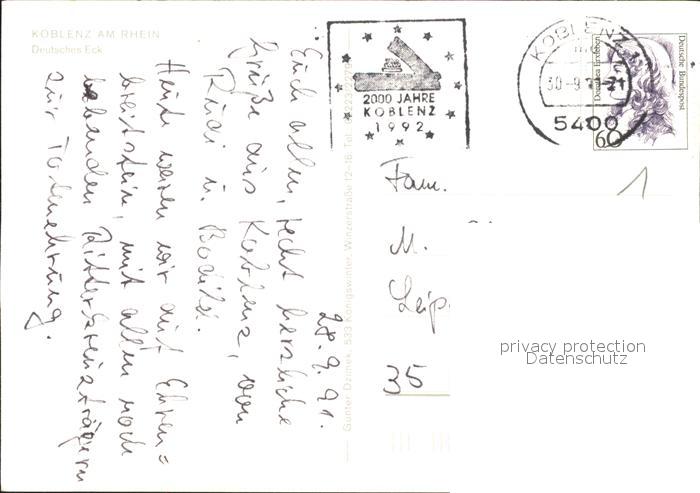 KOBLENZ AM RHEIN
Deutsches Eck
28. 9. 91.
Euch allen, recht herzliche
Grüße aus Koblenz, von
Rudi u.
Heute waren wir auf Ehren=
breitstein, mit allen noch
lebenden Ritterkreuzträgern
zur Totenehrung.
Günter Dzimek, 533 Königswinter, Winzerstraße 12-16, Tel.
2000 JAHRE
KOBLENZ
1992
KOBLENZ
30-9.91-21
5400
Deutsche Bundespost
Dorothea Erxleben
60
1
Fam.
M.
Leip
35
privacy protection
Datenschutz